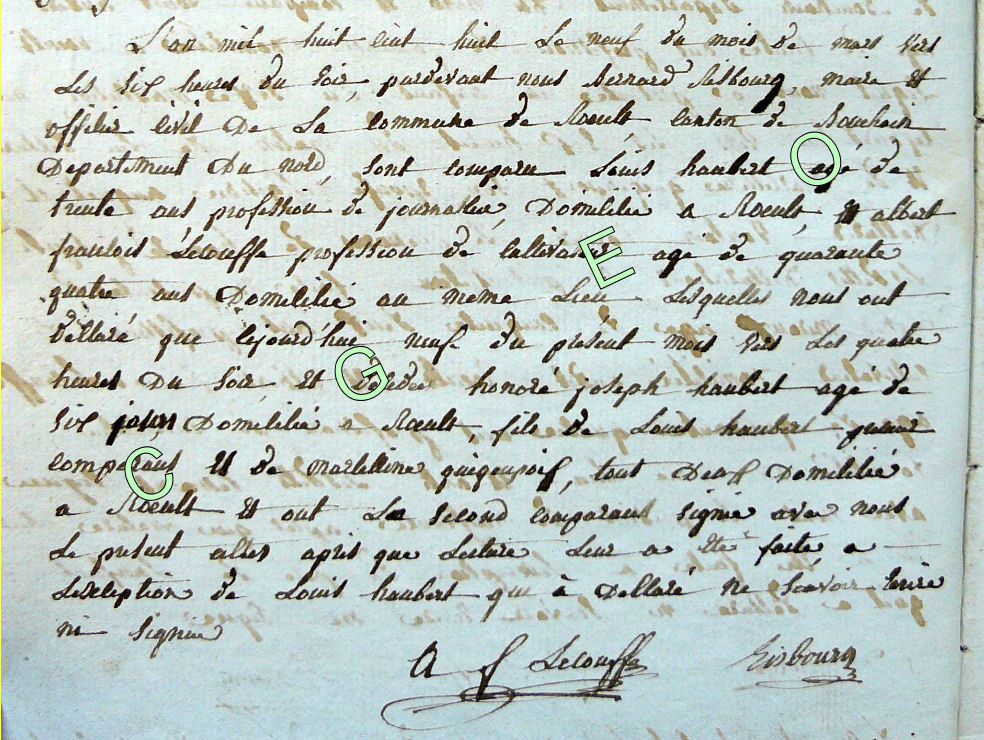 L'an mil huit cent huit Le neuf du mois de mars vers
Les six heures du soir, pardevant nous Bernard Risbourg, maire et
officier civil De La commune de Rœult, canton de Bouchain
Departement Du nord, sont comparu Louis haubert agé de
trente ans profession de journalier, Domicilié a Rœult, et albert
francois Lecouffe profession de cultivateur agé de quarante
quatre ans Domicilié au meme Lieu Lesquelles nous ont
déclaré que cejourd'hui neuf du présent mois vers Les quatre
heures Du soir Est décédée honoré joseph haubert agé de
six jours Domicilié a Rœult, fils de Louis haubert premier
comparant Et de marcelline, tout Deux Domicilié
a Rœult Et ont Le second comparans signié avec nous
Le present actes après que Lecture Leur a été faite a
Lexception de Louis haubert qui à Déclaré ne scavoir Ecrire
ni signier
A f Lecouffe Risbourg
O
E
G
C